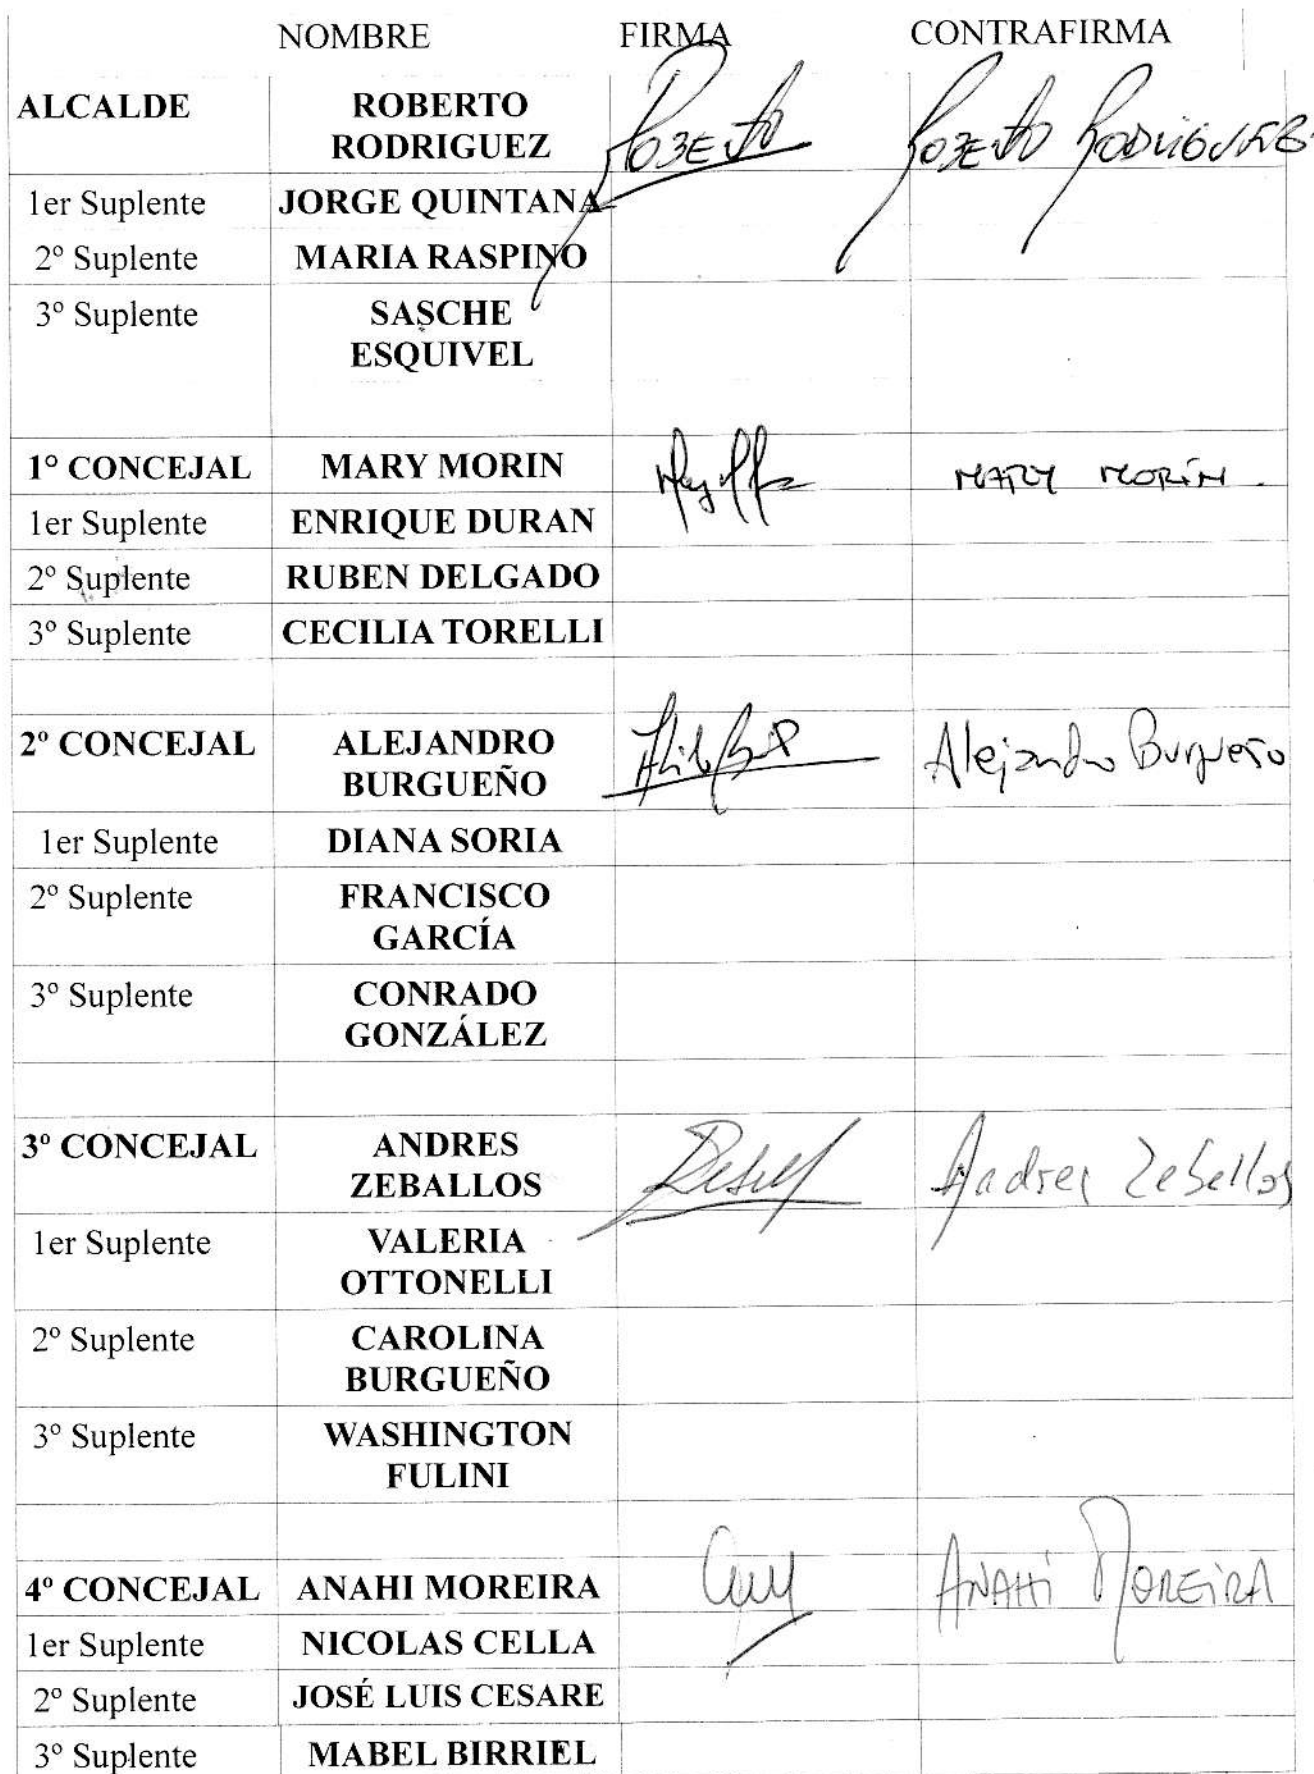 NOMBRE FIRMA CONTRAFIRMA
ALCALDE ROBERTO
RODRIGUEZ Roberto Roberto Rodriguez
1er Suplente JORGE QUINTANA
2º Suplente MARIA RASPINO
3º Suplente SASCHE
ESQUIVEL
1º CONCEJAL MARY MORIN MARY MORÍN.
1er Suplente ENRIQUE DURAN
2º Suplente RUBEN DELGADO
3º Suplente CECILIA TORELLI
2º CONCEJAL ALEJANDRO
BURGUEÑO Alejandro Burgueño
1er Suplente DIANA SORIA
2º Suplente FRANCISCO
GARCÍA
3º Suplente CONRADO
GONZÁLEZ
3º CONCEJAL ANDRES
ZEBALLOS Andres Zeballos
1er Suplente VALERIA
OTTONELLI
2º Suplente CAROLINA
BURGUEÑO
3º Suplente WASHINGTON
FULINI
4º CONCEJAL ANAHI MOREIRA ANAHI MOREIRA
1er Suplente NICOLAS CELLA
2º Suplente JOSÉ LUIS CESARE
3º Suplente MABEL BIRRIEL